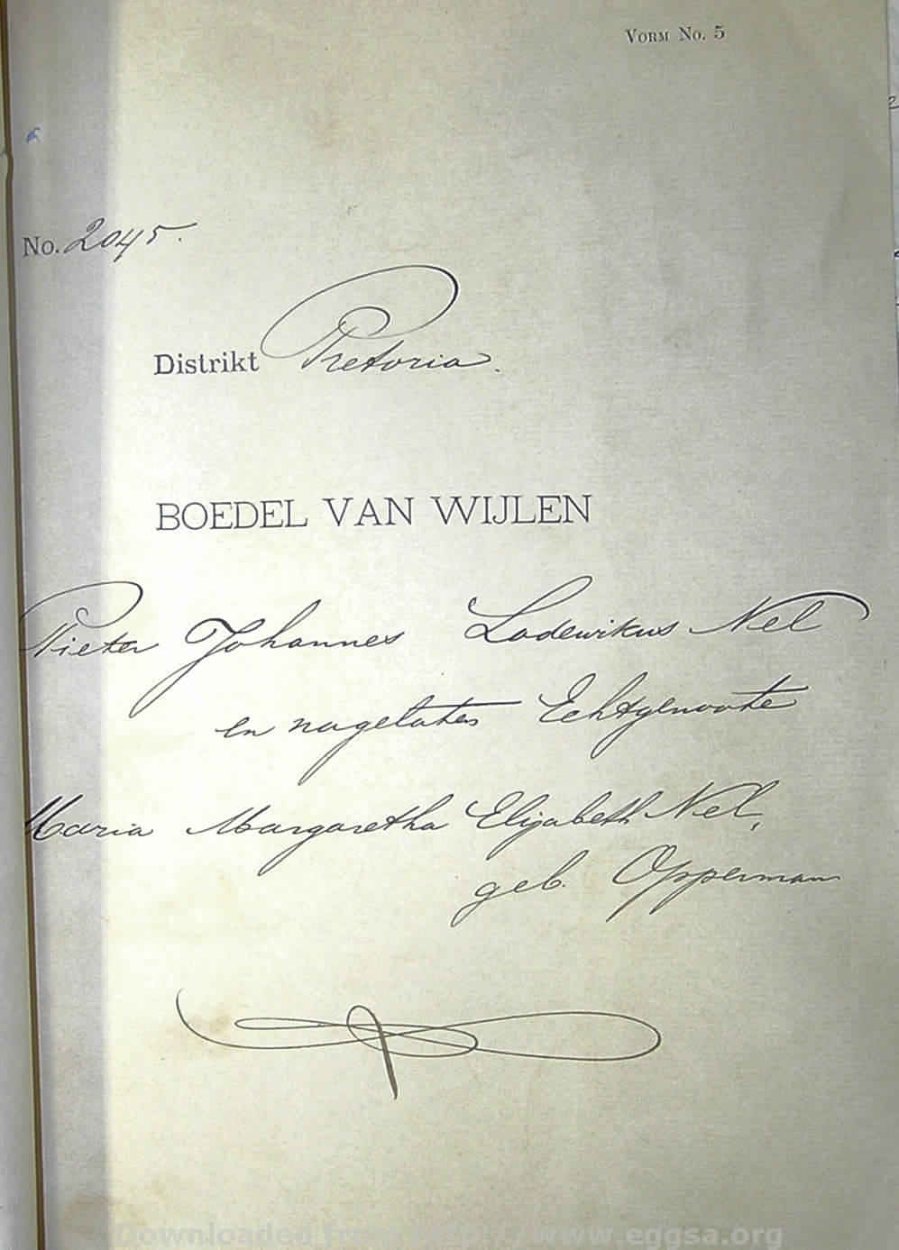 VORM No. 5
No. 2045.
Distrikt Pretoria.
BOEDEL VAN WIJLEN
Pieter Johannes Lodewikus Nel
en nagelaten Echtgenoote
Maria Margaretha Elizabeth Nel,
geb. Opperman
Downloaded from http://www.eggsa.org